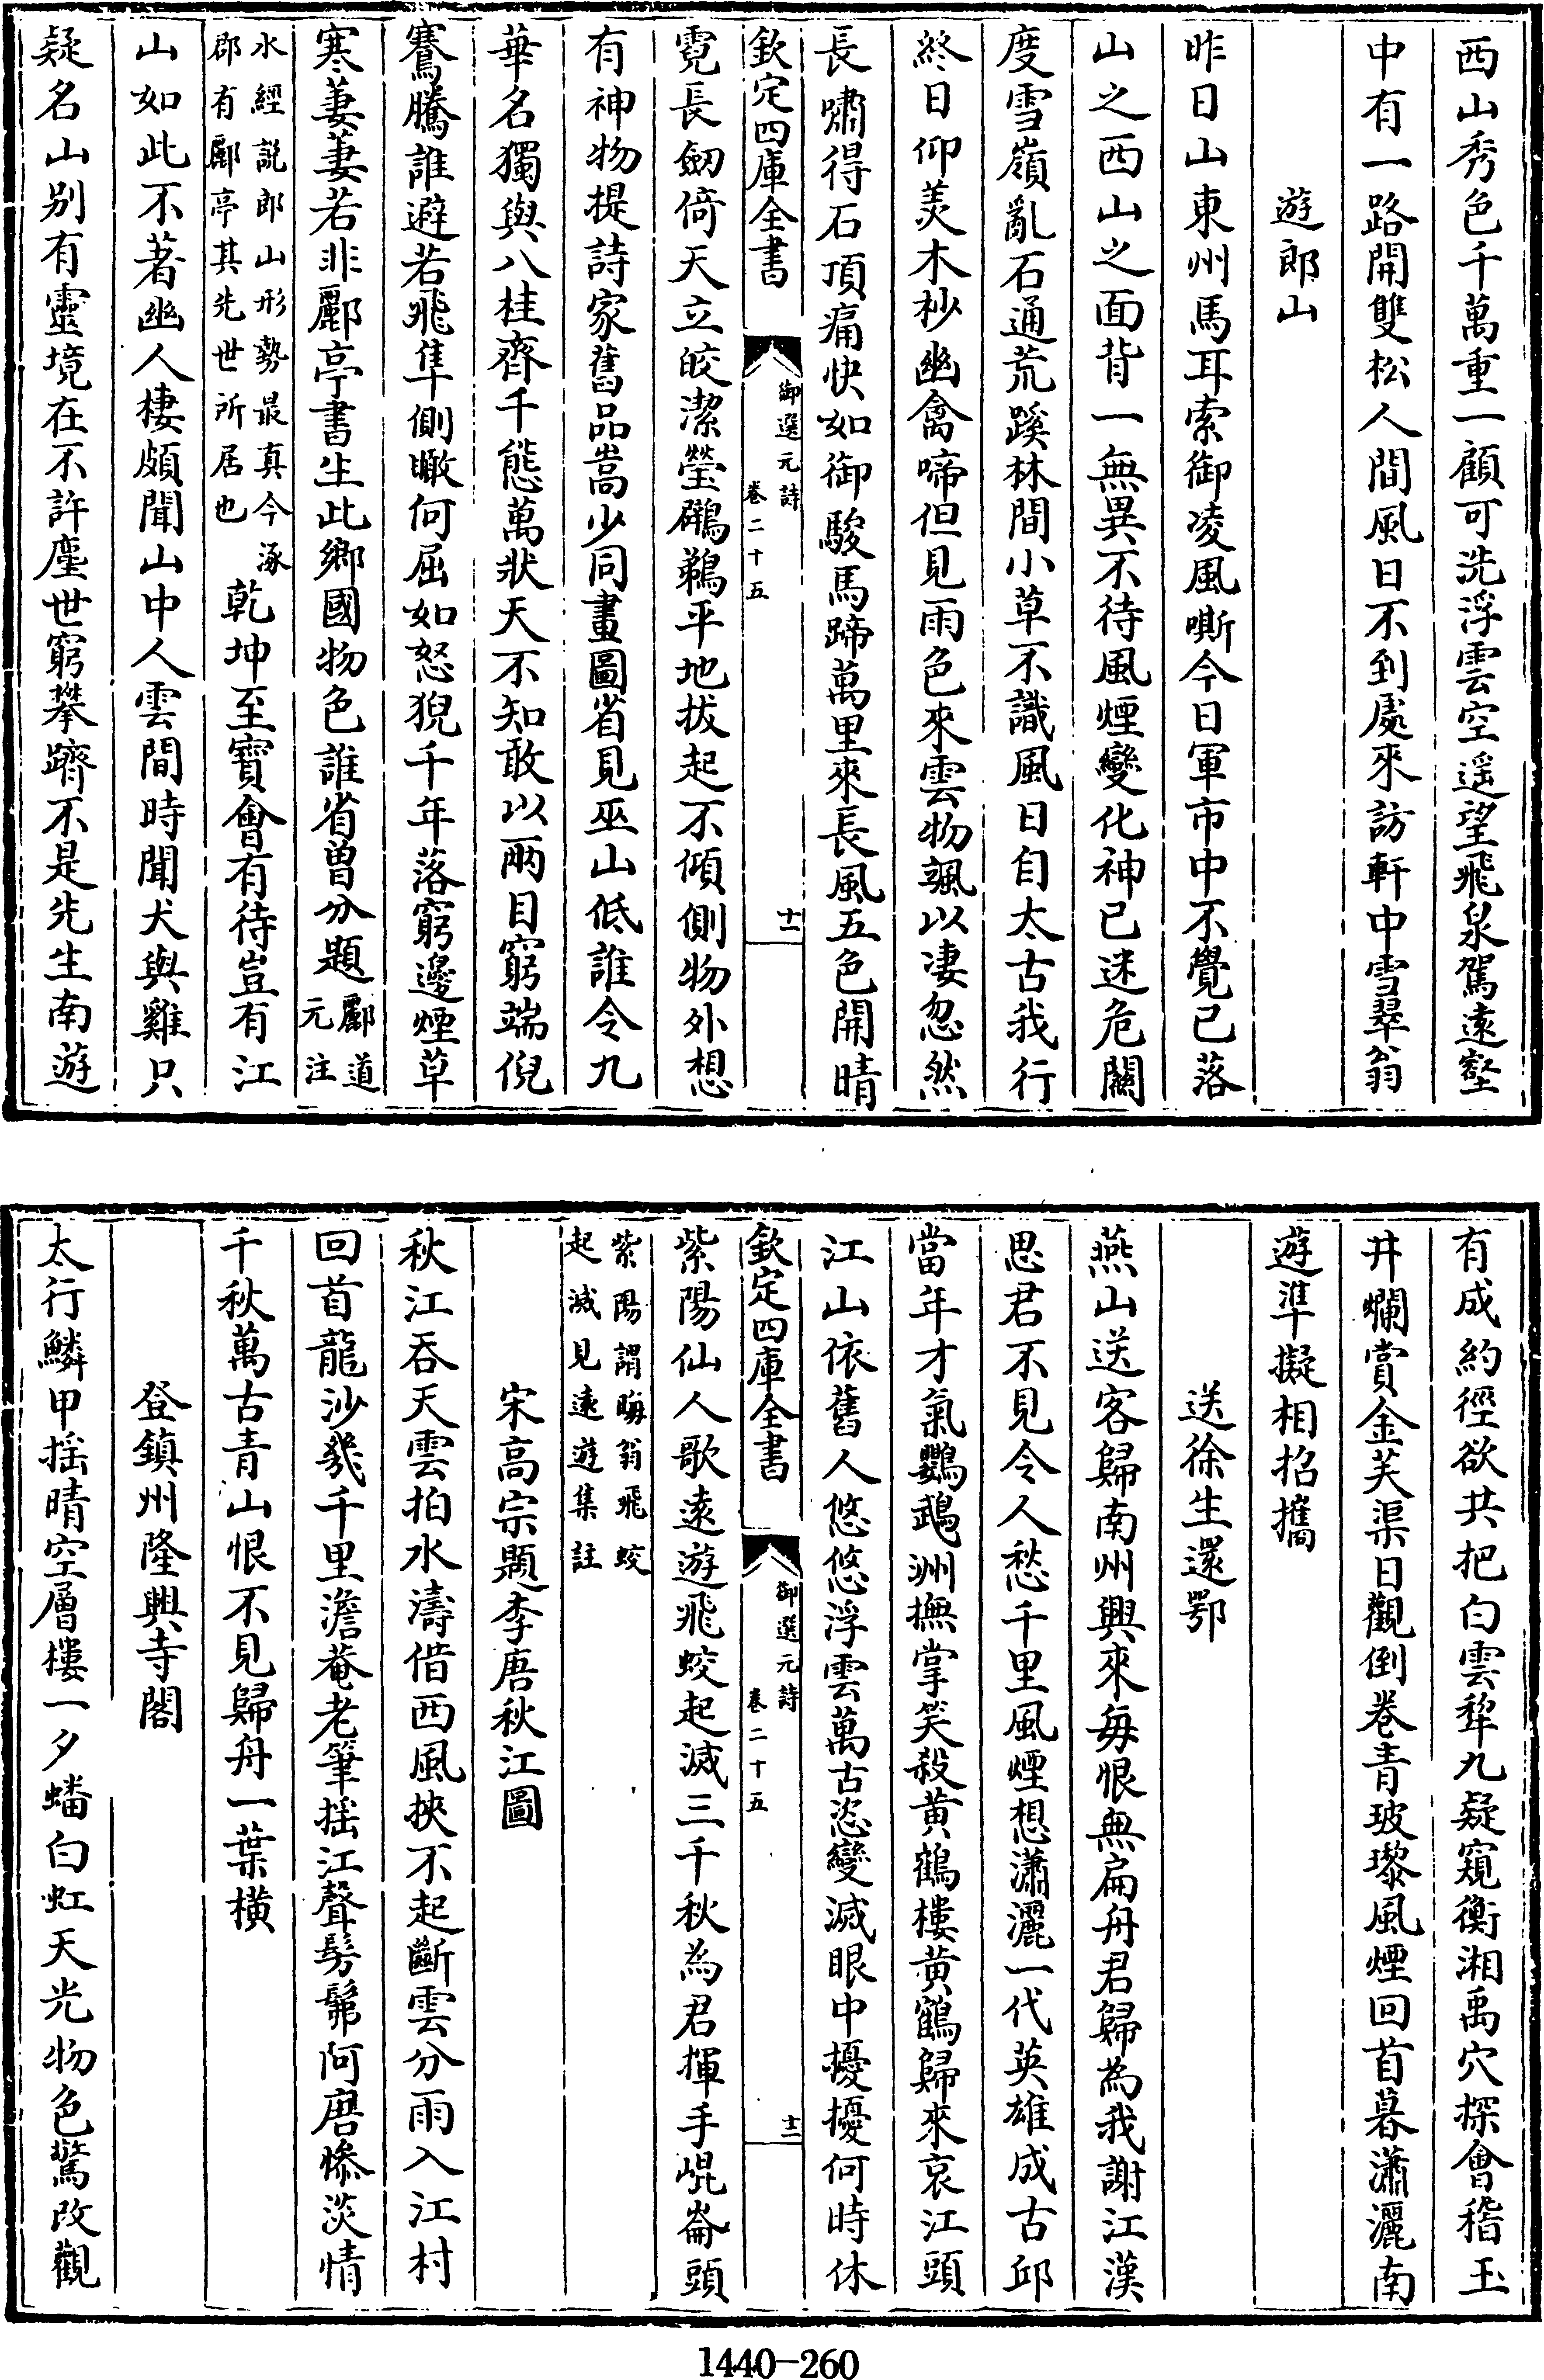 西山秀色千萬重一顧可洗浮雲空遥望飛泉駕遠壑
中有一路開雙松人間風日不到處來訪軒中雪翠翁
遊郎山
昨日山東州馬耳索御凌風嘶今日軍市中不覺已落
山之西山之面背一無異不待風煙變化神已迷危闗
度雪嶺亂石通荒蹊林間小草不識風日自太古我行
終日仰羡木杪幽禽啼但見雨色來雲物颯以凄忽然
長嘯得石頂痛快如御駿馬蹄萬里來長風五色開晴
欽定四庫全書 御選元詩 卷二十五 十一
霓長劒倚天立皎潔瑩鸊鵜平地拔起不傾側物外想
有神物提詩家舊品嵩少同畫圖省見巫山低誰令九
華名獨與八桂齊千態萬狀天不知敢以兩目窮端倪
鶱騰誰避若飛隼側瞰何屈如怒猊千年落窮邊煙草
寒萋萋若非酈亭書生此鄉國物色誰省曽分題酈道
元注
水經説郎山形勢最真今涿
郡有酈亭其先世所居也乾坤至寳會有待豈有江
山如此不著幽人棲頗聞山中人雲間時聞犬與雞只
疑名山别有靈境在不許塵世窮攀躋不是先生南遊
有成約徑欲共把白雲犂九疑窺衡湘禹穴探會稽玉
井爛賞金芙渠日觀倒卷青玻瓈風煙回首暮瀟灑南
遊準擬相招攜
送徐生還鄂
燕山送客歸南州興來每恨無扁舟君歸為我謝江漢
思君不見令人愁千里風煙想瀟灑一代英雄成古邱
當年才氣鸚鵡洲撫掌笑殺黄鶴樓黄鶴歸來哀江頭
江山依舊人悠悠浮雲萬古恣變滅眼中擾擾何時休
欽定四庫全書 御選元詩 卷二十五 十二
紫陽仙人歌遠遊飛蛟起滅三千秋為君揮手崐崙頭
紫陽謂晦翁飛蛟
起滅見遠遊集註
宋高宗題李唐秋江圖
秋江吞天雲拍水濤借西風挾不起斷雲分雨入江村
回首龍沙幾千里澹菴老筆揺江聲髣髴阿唐慘淡情
千秋萬古青山恨不見歸舟一葉横
登鎮州隆興寺閣
太行鱗甲揺晴空層樓一夕蟠白虹天光物色驚改觀
1440-260